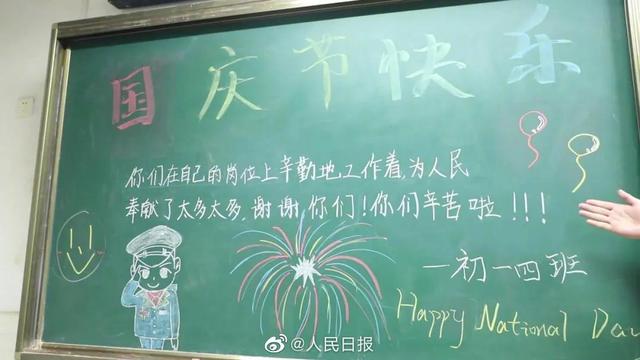 国庆节快乐
你们在自己的岗位上辛勤地工作着,为人民
奉献了太多太多,谢谢你们!你们辛苦啦!!!
一初一四班
Happy National Da
@人民日报